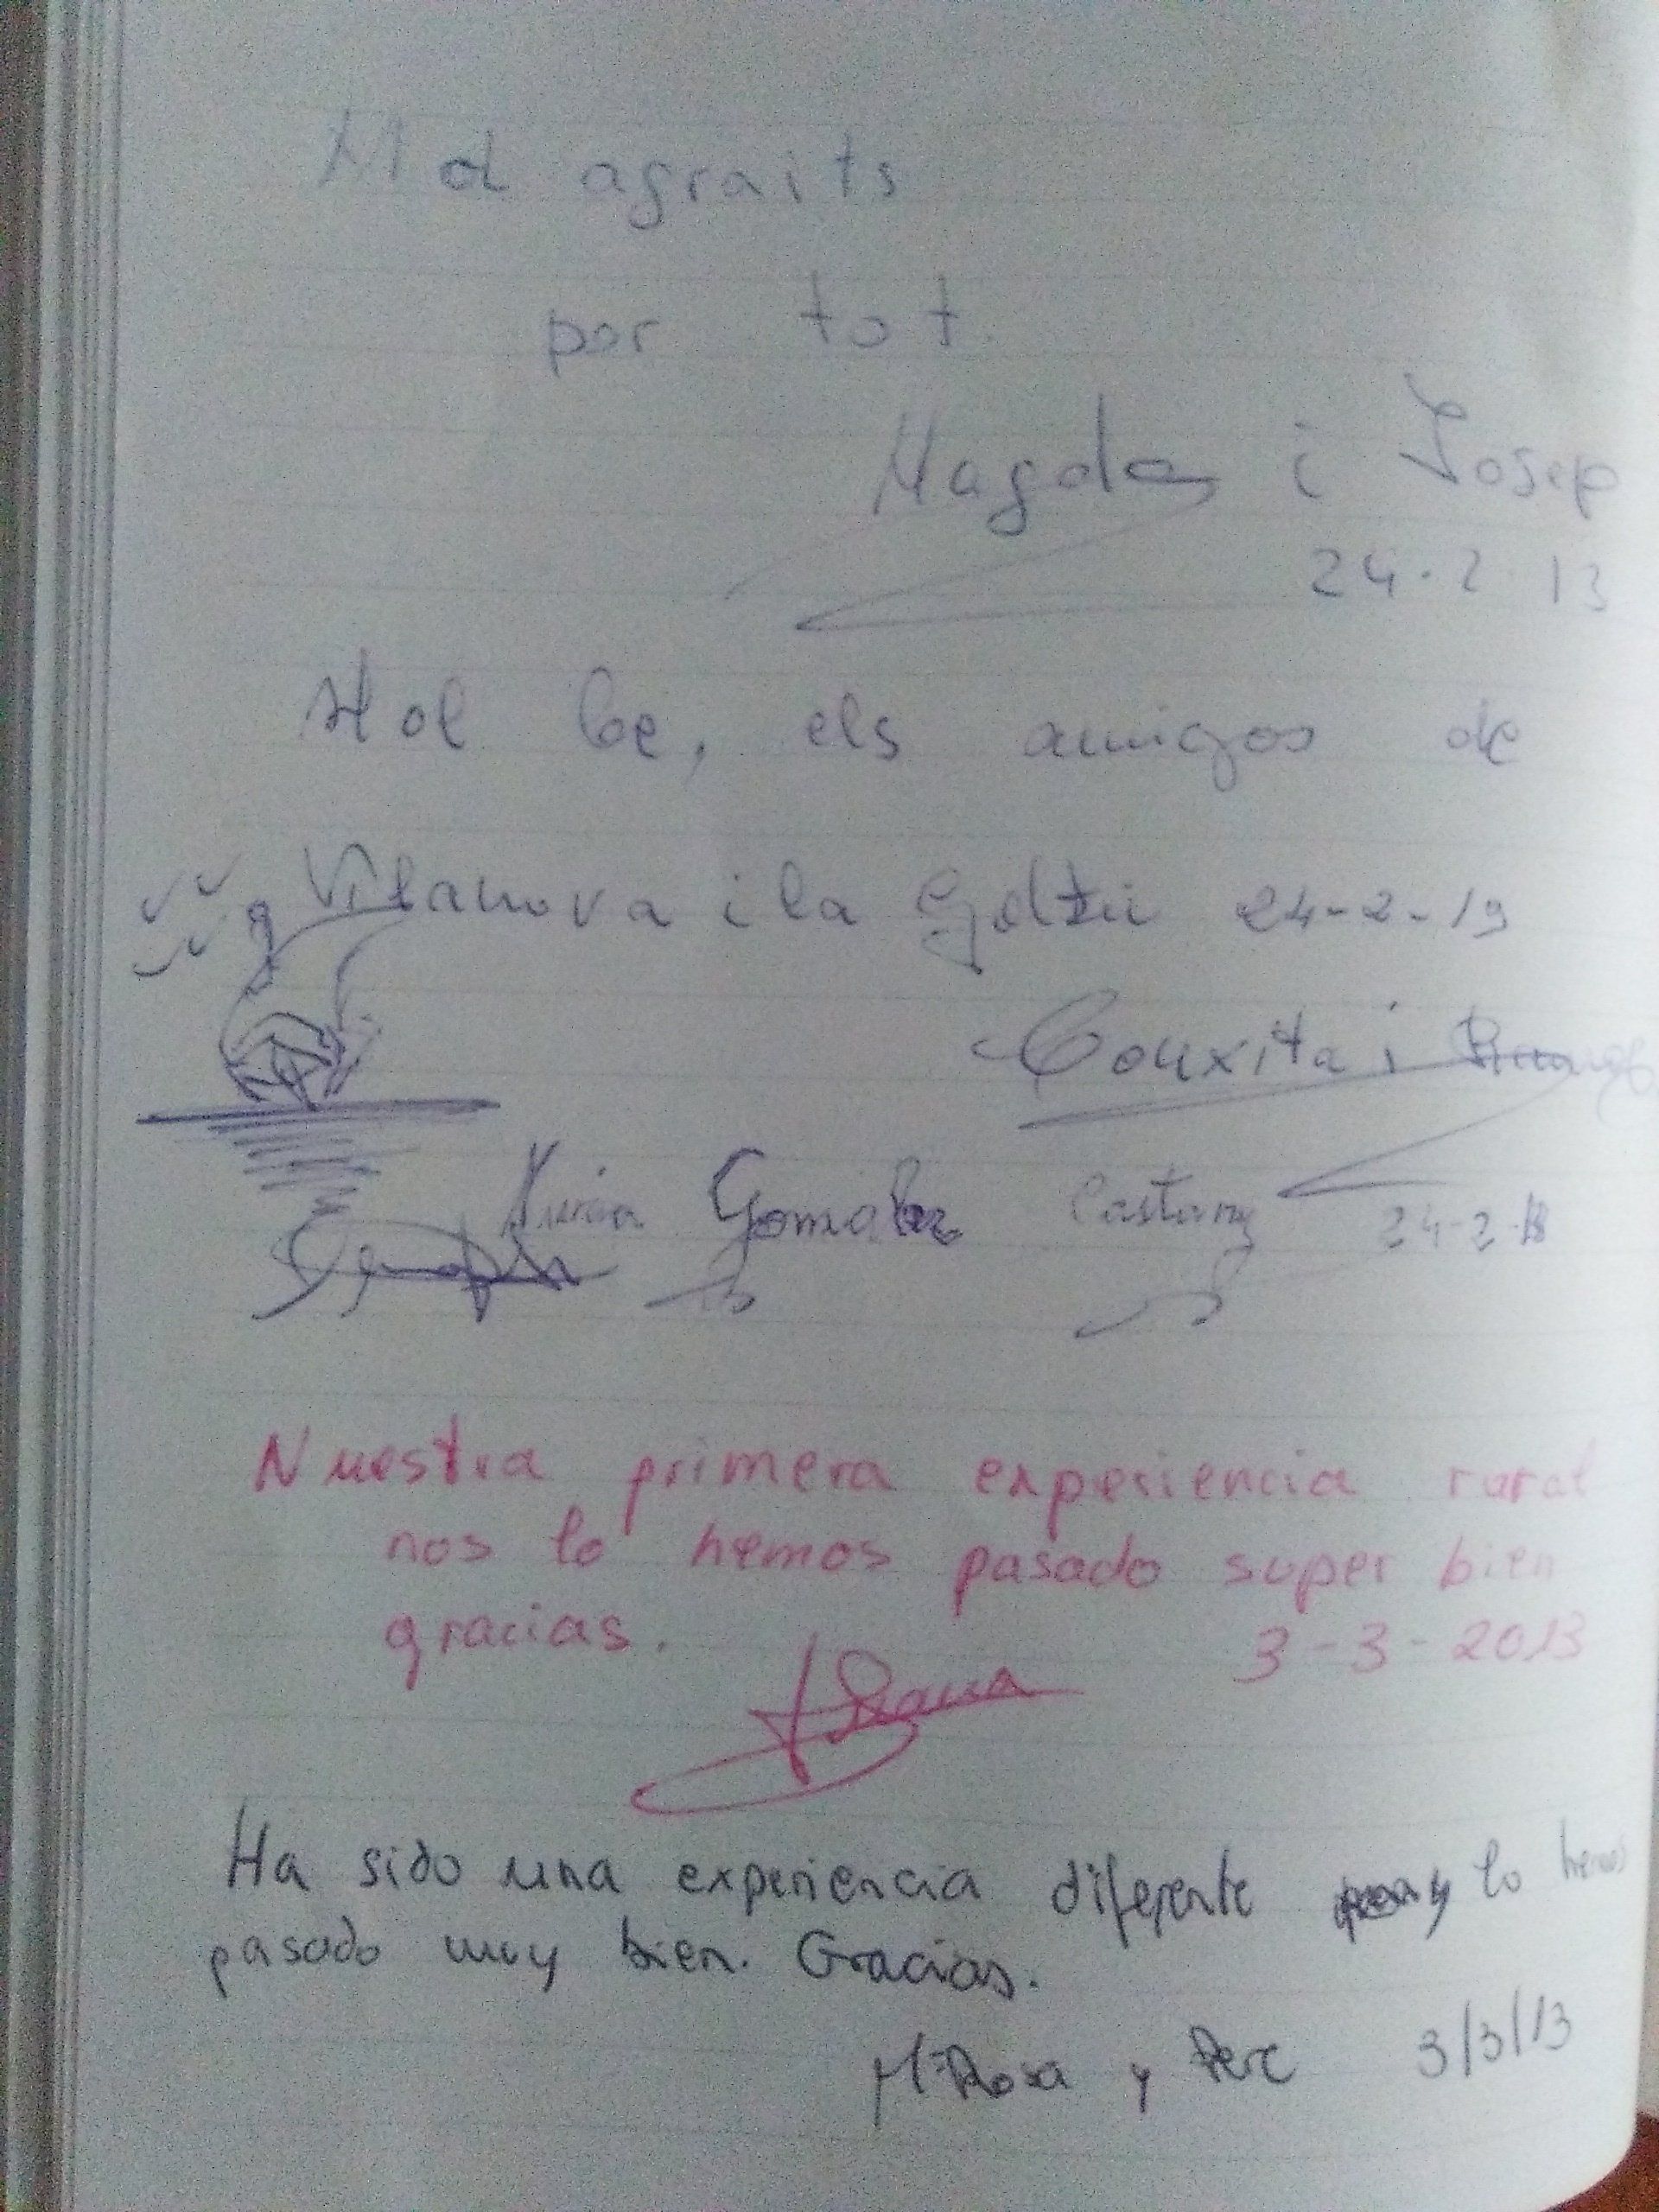 Mol agraits
por tot
Magda i Josep
24.2 13
Mol be, els amigos de
Vilanova i la Geltrú 24-2-13
Conxita i
Nuria Gomalez Castany 24-2-13
Nuestra primera experiencia rural
nos lo hemos pasado super bien
gracias. 3-3-2013
Ha sido una experiencia diferente y lo hemos
pasado muy bien. Gracias.
Mª Rosa y Pere 3/3/13